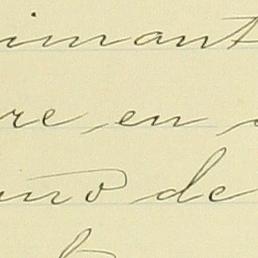 imant
re en
uno de